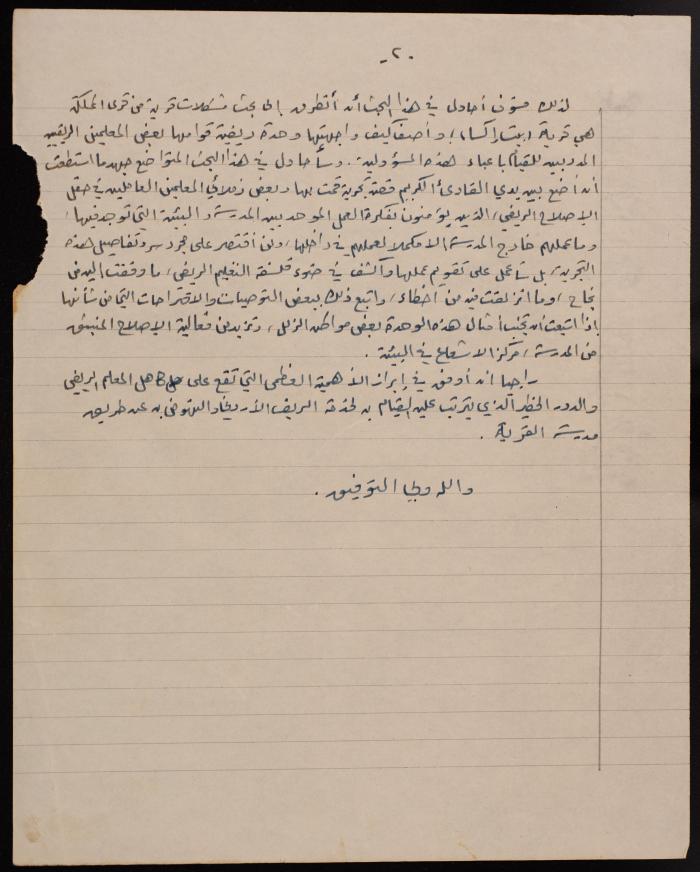 -٢-
لذلك فسوف أحاول في هذا البحث أن أتطرق إلى بحث مشكلات قرية من قرى المملكة
هي قرية (بتير الكساب)، وأصف كيف واجهتها وحدة ريفية قوامها بعض المعلمين الريفيين
المدربين للقيام باعباء هذه المسؤولية. وسأحاول في هذا البحث المتواضع جهد ما استطعت
أن أضع بين يدي القارئ الكريم قصة تجربة قمت بها وبعض زملائي المعلمين العاملين في حقل
الإصلاح الريفي، الذين يؤمنون بفكرة العمل الموحد بين المدرسة والبيئة التي توجد فيها،
وما عملهم خارج المدرسة الا مكملا لعملهم في داخلها، ولن أقتصر على مجرد سرد تفاصيل هذه
التجربة، بل سأعمل على تقويم عملها وأكشف في ضوء فلسفة التعليم الريفي، ما وفقت إليه من
نجاح، وما انزلقت فيه من أخطاء، واتبع ذلك ببعض التوصيات والاقتراحات التي من شأنها
إذا اتبعت أن تجنب أمثال هذه الوحدة بعض مواطن الزلل، وتزيد من فعالية الإصلاح المنبثق
من المدرسة، مركز الاشعاع في البيئة.
راجيا ان أوفق في إبراز الأهمية العظمى التي تقع على كاهل المعلم الريفي
والدور الخطير الذي يترتب عليه القيام به لخدمة الريف الأردني والنهوض به عن طريق
مدرسة القرية.
والله ولي التوفيق.